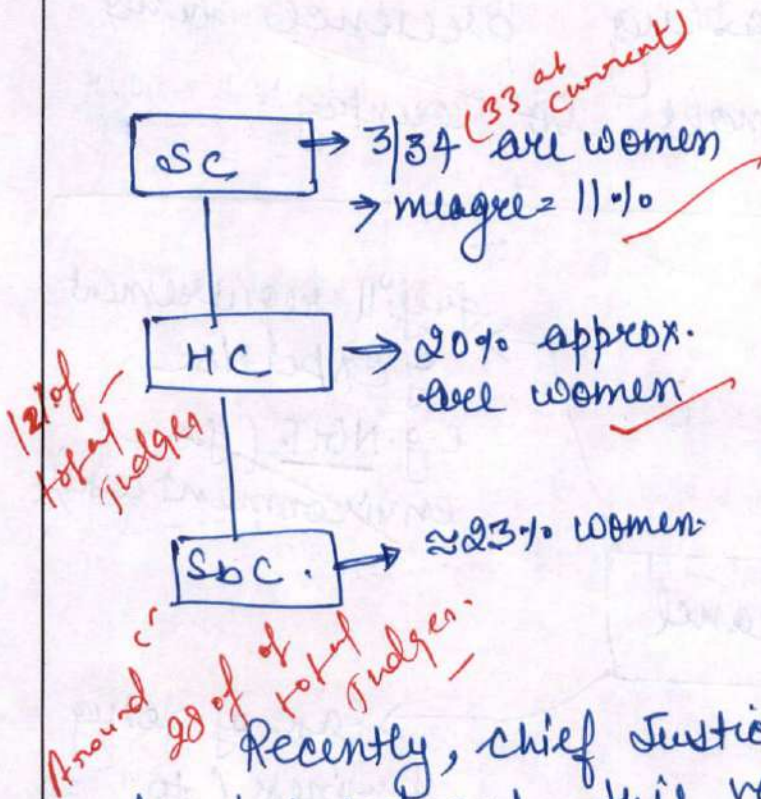 (33 at
current)
SC → 3/34 are women
→ meagre = 11%
HC → 20% approx.
are women
12% of
total
Judges
SbC. → ≈23% women.
Around
28% of
total
Judges.
Recently, chief Justic